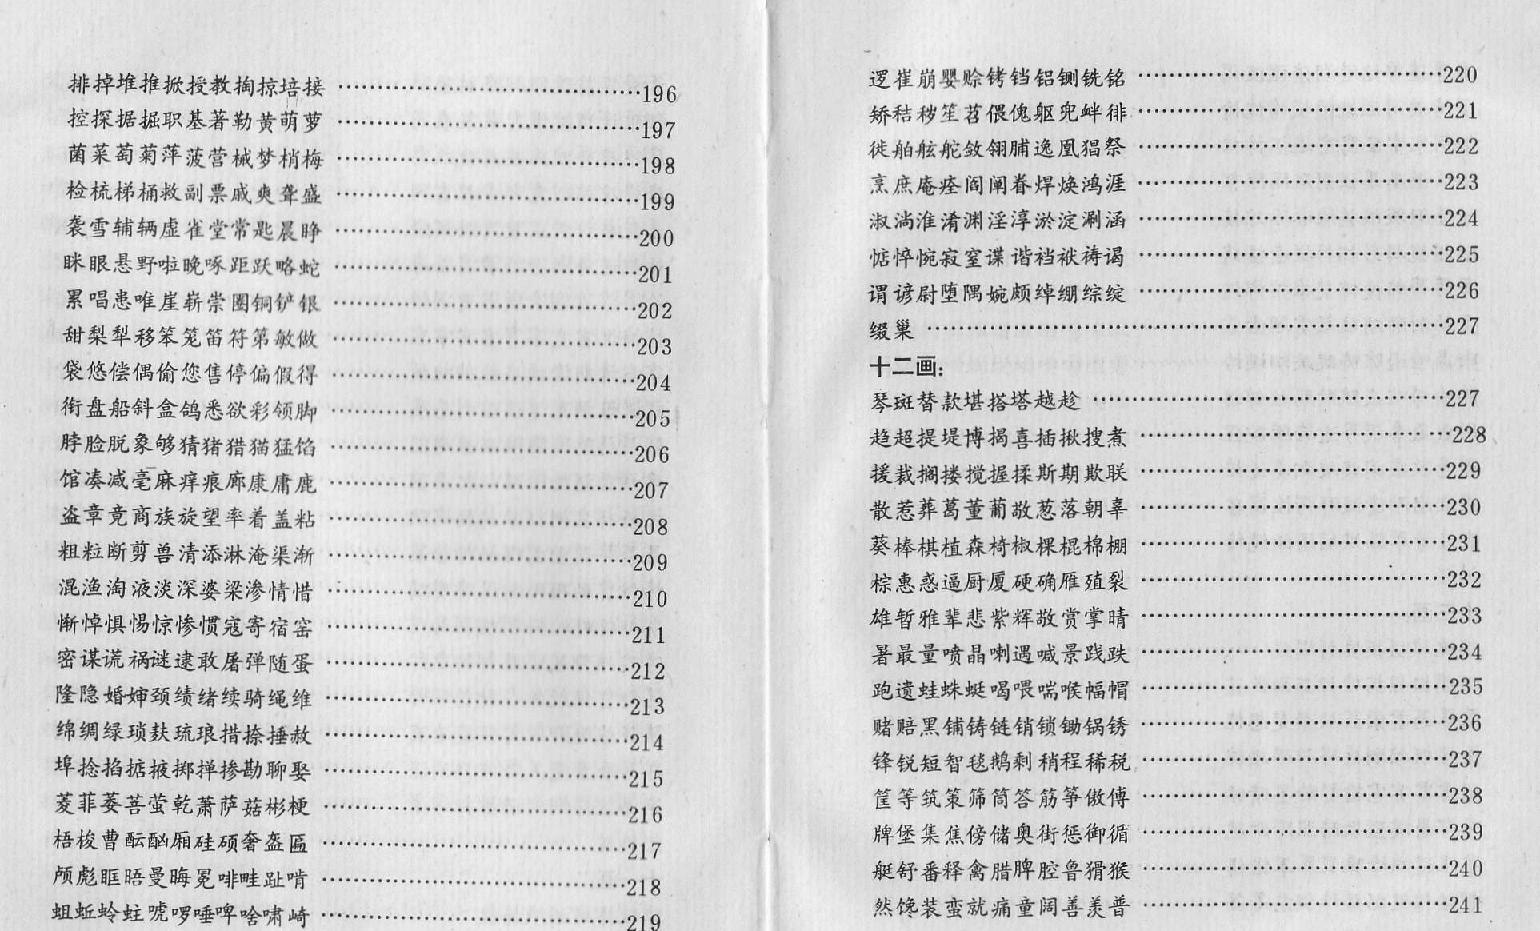 排掉堆推掀授教掏掠培接……196
控探据掘职基著勒黄萌萝……197
菌菜萄菊萍菠营械梦梢梅……198
检梳梯桶救副票戚爽聋盛……199
袭雪辅辆虚雀堂常匙晨睁……200
眯眼悬野啦晚啄距跃略蛇……201
累唱患唯崖崭崇圈铜铲银……202
甜梨犁移笨笼笛符第敏做……203
袋悠偿偶偷您售停偏假得……204
衔盘船斜盒鸽悉欲彩领脚……205
脖脸脱象够猜猪猎猫猛馅……206
馆凑减毫麻痒痕廊康庸鹿……207
盗章竟商族旋望率着盖粘……208
粗粒断剪兽清添淋淹渠渐……209
混渔淘液淡深婆梁渗情惜……210
惭悼惧惕惊惨惯寇寄宿窑……211
密谋谎祸谜逮敢屠弹随蛋……212
隆隐婚婶颈绩绪续骑绳维……213
绵绸绿琐麸琉琅措捺捶赦……214
埠捻掐掂掖掷掸掺勘聊娶……215
菱菲萎菩萤乾萧萨菇彬梗……216
梧梭曹酝酗厢硅硕奢盔匾……217
颅彪眶晤曼晦冕啡畦趾啃……218
蛆蚯蛉蛀唬啰唾啤啥啸崎……219
逻崔崩婴赊铐铛铝铡铣铭……220
矫秸秽笙笤偎傀躯兜衅徘……221
徙舶舷舵敛翎脯逸凰猖祭……222
烹庶庵痊阎阐眷焊焕鸿涯……223
淑淌淮淆渊淫淳淤淀涮涵……224
惦悴惋寂窒谍谐裆袱祷谒……225
谓谚尉堕隅婉颇绰绷综绽……226
缀巢……227
十二画:
琴斑替款堪搭塔越趁……227
趋超提堤博揭喜插揪搜煮……228
援裁搁搂搅握揉斯期欺联……229
散惹葬葛董葡敬葱落朝辜……230
葵棒棋植森椅椒棵棍棉棚……231
棕惠惑逼厨厦硬确雁殖裂……232
雄暂雅辈悲紫辉敞赏掌晴……233
暑最量喷晶喇遇喊景践跌……234
跑遗蛙蛛蜓喝喂喘喉幅帽……235
赌赔黑铺铸链销锁锄锅锈……236
锋锐短智毯鹅剩稍程稀税……237
筐等筑策筛筒答筋筝傲傅……238
牌堡集焦傍储奥街惩御循……239
艇舒番释禽腊脾腔鲁猾猴……240
然馋装蛮就痛童阔善羡普……241